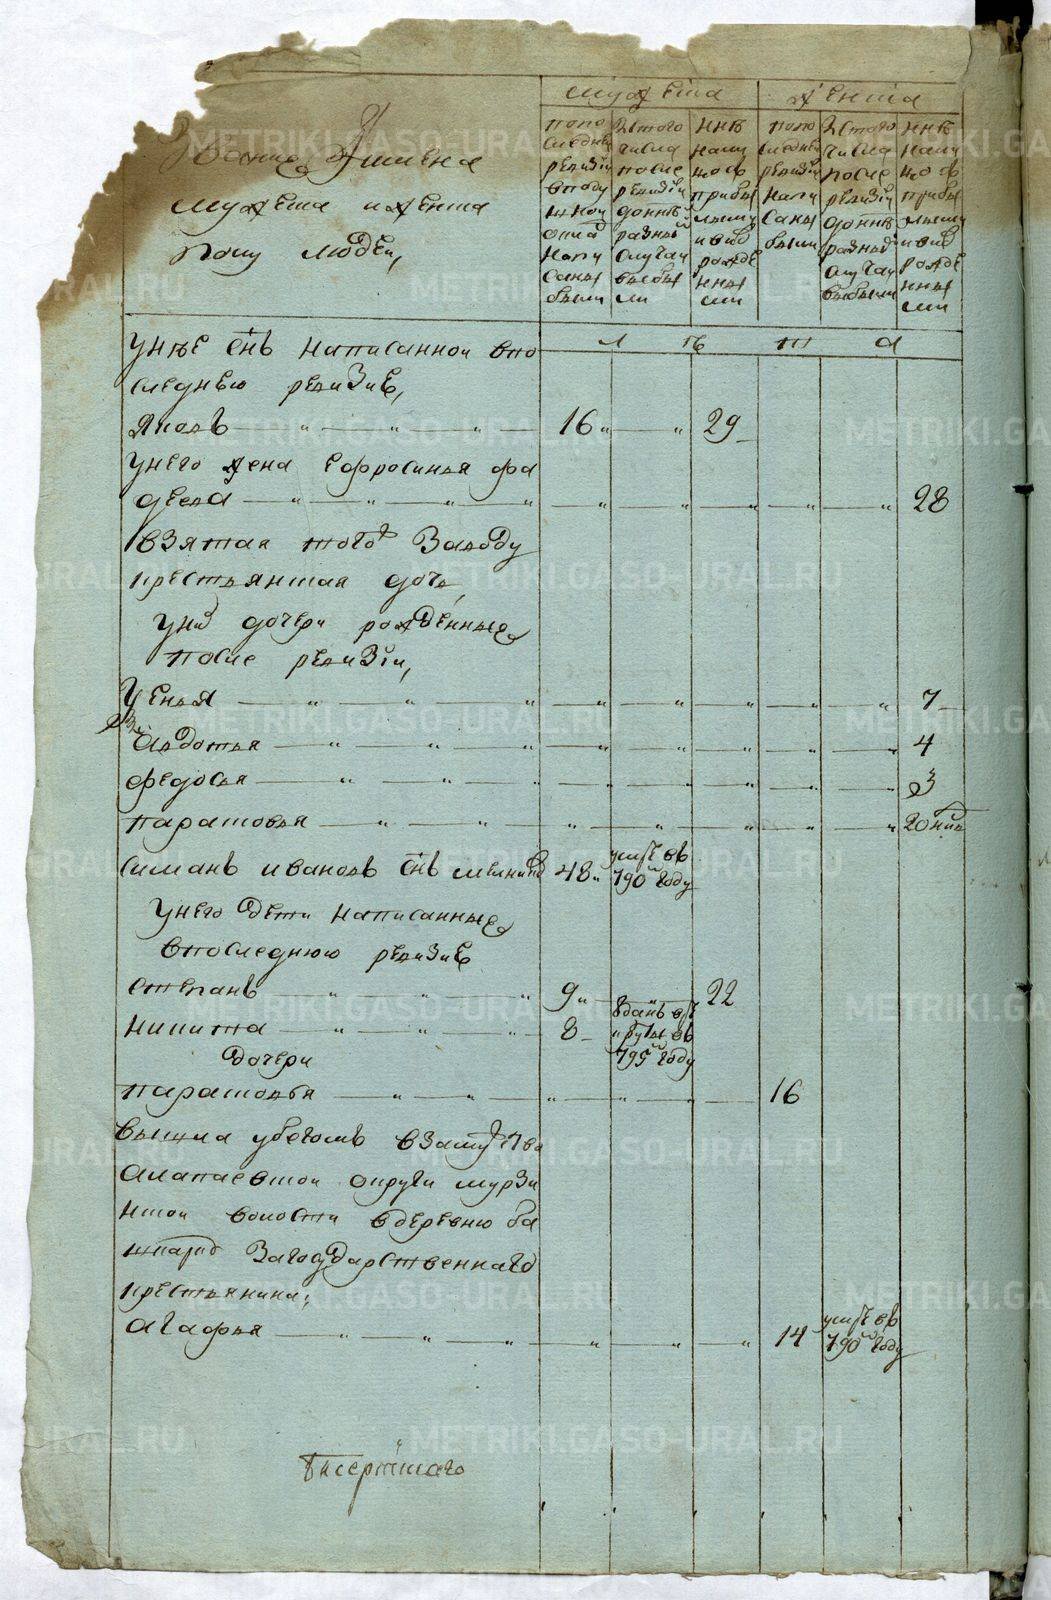 мужеска женска
Звание имена
мужеска и женска
полу людеи,
по последней ревизии в подушной оклад написаны были
Из того числа после ревизии до ныне разный случаи выбыли
ныне налицо с прибылыми и вновь рожденными
по последней ревизии написаны были
Из того числа после ревизии до ныне разный случаи выбыли
ныне налицо с прибылыми и вновь рожденными
л ѣ т а
у нее снъ написанной в по
следнею ревизию,
Яковъ 16 29
у него жена Ефросинья фа
деева 28
взятая того заводу
крестьянская дочь,
у них дочери рожденные
после ревизии,
Ксенья 7
Авдотья 4
Федосья 3
Парасковья 20 нед
Симанъ Ивановъ снъ мелников 48 умре в 790м году
у него дети написанные
в последнюю ревизию
Степанъ 9 22
Никита 8 Отданъ в рекруты в 795м году
дочери
Парасковья 16
вышла убегомъ в замужство
алапаевской округи мурзи
нской волости в деревню ба
за государственнаго
крестьянина;
Агафья 14 умре в 790м году
Бисертскаго
METRIKI.GASO-URAL.RU